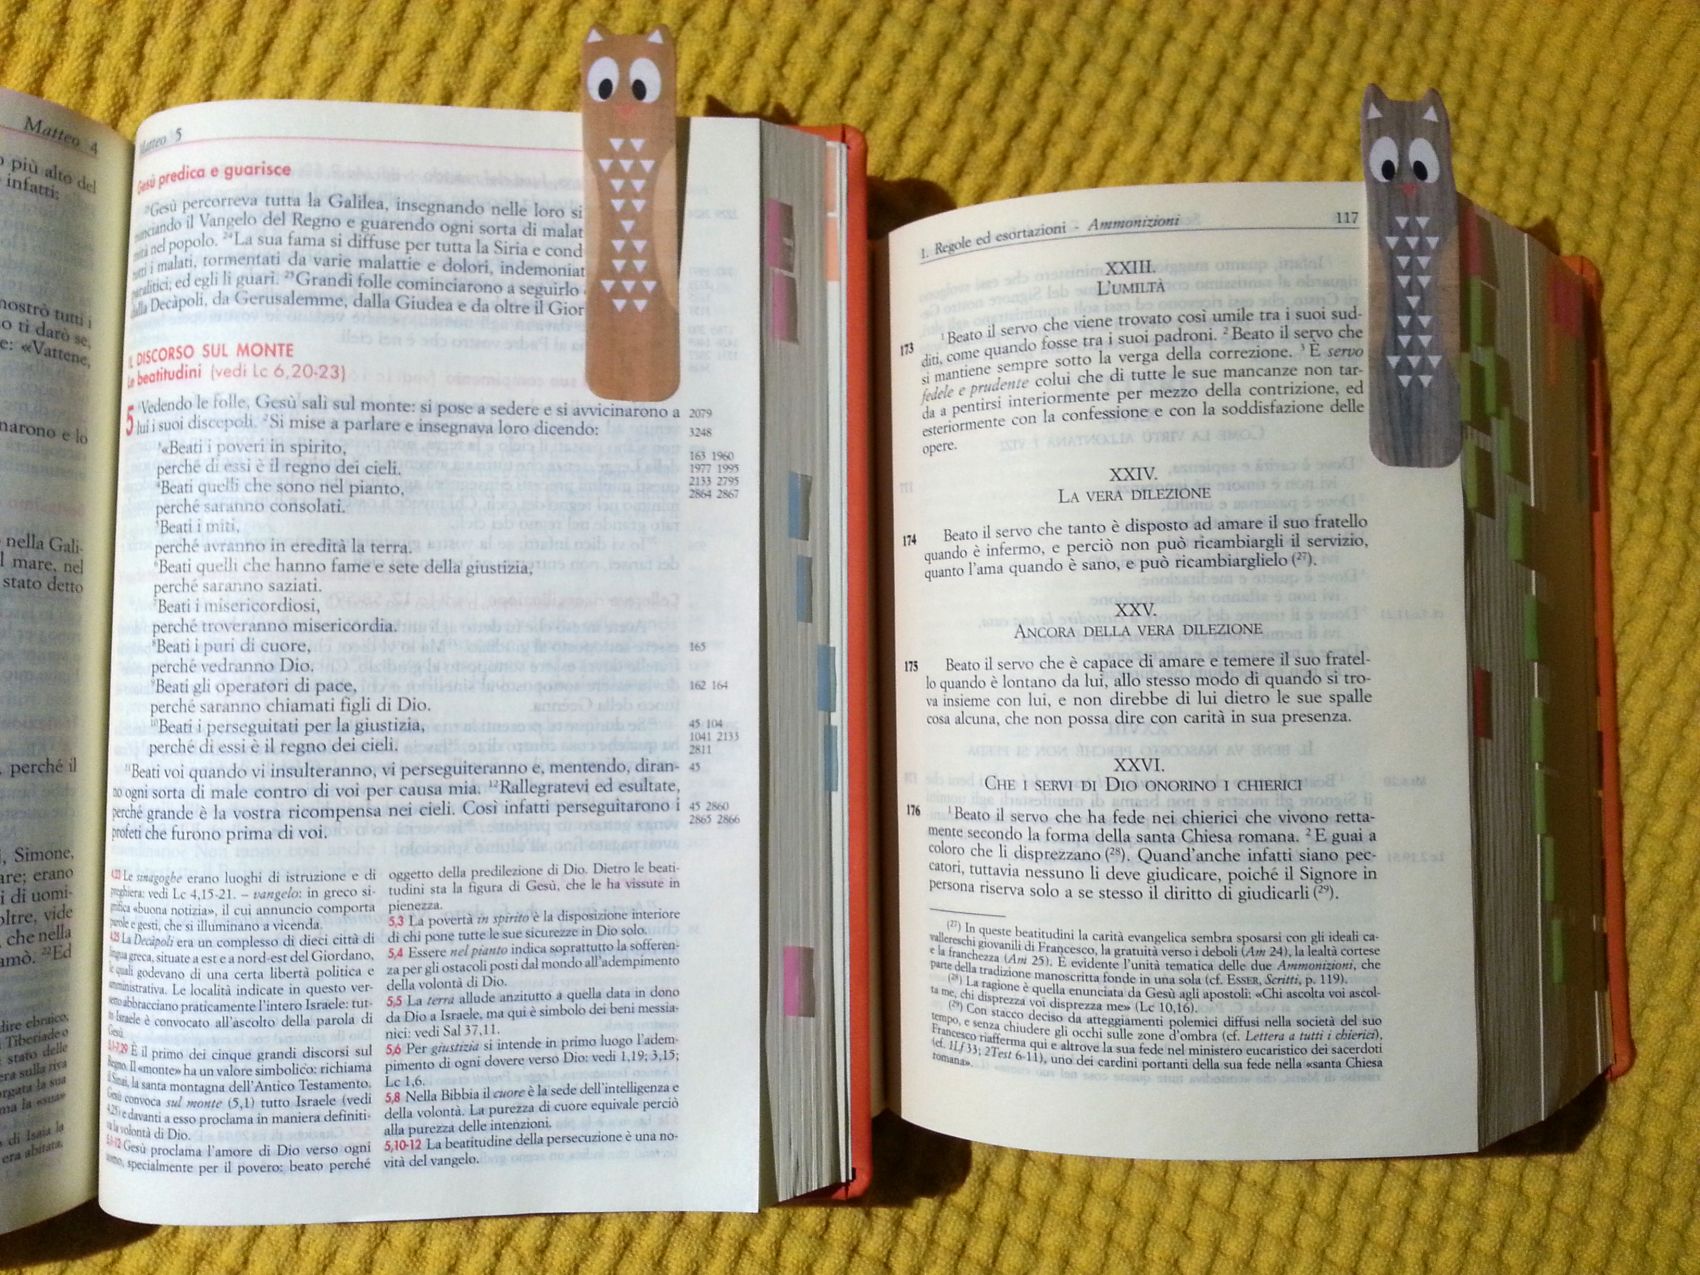 Matteo 4
più alto del
infatti:
nostrò tutti i
o ti darò se,
e: «Vattene,
narono e lo
nella Gali-
l mare, nel
stato detto
perché il
, Simone,
are; erano
i di uomi-
oltre, vide
, che nella
amò. ²²Ed
dire ebraico,
Tiberiade o
stato delle
era sulla riva
orgata la sua
ma la «sua»
di Isaia la
era abitata.
Matteo 5
Gesù predica e guarisce
Gesù percorreva tutta la Galilea, insegnando nelle loro si
nunciando il Vangelo del Regno e guarendo ogni sorta di malat
mità nel popolo. ²⁴La sua fama si diffuse per tutta la Siria e cond
tutti i malati, tormentati da varie malattie e dolori, indemoniat
paralitici; ed egli li guarì. ²⁵Grandi folle cominciarono a seguirlo
dalla Decàpoli, da Gerusalemme, dalla Giudea e da oltre il Gior
IL DISCORSO SUL MONTE
Le beatitudini (vedi Lc 6,20-23)
5 ¹Vedendo le folle, Gesù salì sul monte: si pose a sedere e si avvicinarono a 2079
lui i suoi discepoli. ²Si mise a parlare e insegnava loro dicendo: 3248
³«Beati i poveri in spirito, 163 1960
perché di essi è il regno dei cieli. 1977 1995
⁴Beati quelli che sono nel pianto, 2133 2795
2864 2867
perché saranno consolati.
⁵Beati i miti,
perché avranno in eredità la terra.
⁶Beati quelli che hanno fame e sete della giustizia,
perché saranno saziati.
⁷Beati i misericordiosi,
perché troveranno misericordia.
⁸Beati i puri di cuore, 165
perché vedranno Dio.
⁹Beati gli operatori di pace, 162 164
perché saranno chiamati figli di Dio.
¹⁰Beati i perseguitati per la giustizia, 45 104
1041 2133
perché di essi è il regno dei cieli. 2811
¹¹Beati voi quando vi insulteranno, vi perseguiteranno e, mentendo, diran- 45
no ogni sorta di male contro di voi per causa mia. ¹²Rallegratevi ed esultate,
perché grande è la vostra ricompensa nei cieli. Così infatti perseguitarono i 45 2860
2865 2866
profeti che furono prima di voi.
4,23 Le sinagoghe erano luoghi di istruzione e di
preghiera: vedi Lc 4,15-21. – vangelo: in greco si-
gnifica «buona notizia», il cui annuncio comporta
parole e gesti, che si illuminano a vicenda.
4,25 La Decàpoli era un complesso di dieci città di
lingua greca, situate a est e a nord-est del Giordano,
le quali godevano di una certa libertà politica e
amministrativa. Le località indicate in questo ver-
setto abbracciano praticamente l'intero Israele: tut-
to Israele è convocato all'ascolto della parola di
Gesù.
5,1-7,29 È il primo dei cinque grandi discorsi sul
Regno. Il «monte» ha un valore simbolico: richiama
il Sinai, la santa montagna dell'Antico Testamento.
Gesù convoca sul monte (5,1) tutto Israele (vedi
4,25) e davanti a esso proclama in maniera definiti-
va la volontà di Dio.
5,1-12 Gesù proclama l'amore di Dio verso ogni
uomo, specialmente per il povero: beato perché
oggetto della predilezione di Dio. Dietro le beati-
tudini sta la figura di Gesù, che le ha vissute in
pienezza.
5,3 La povertà in spirito è la disposizione interiore
di chi pone tutte le sue sicurezze in Dio solo.
5,4 Essere nel pianto indica soprattutto la sofferen-
za per gli ostacoli posti dal mondo all'adempimento
della volontà di Dio.
5,5 La terra allude anzitutto a quella data in dono
da Dio a Israele, ma qui è simbolo dei beni messia-
nici: vedi Sal 37,11.
5,6 Per giustizia si intende in primo luogo l'adem-
pimento di ogni dovere verso Dio: vedi 1,19; 3,15;
Lc 1,6.
5,8 Nella Bibbia il cuore è la sede dell'intelligenza e
della volontà. La purezza di cuore equivale perciò
alla purezza delle intenzioni.
5,10-12 La beatitudine della persecuzione è una no-
vità del vangelo.
I. Regole ed esortazioni - Ammonizioni 117
XXIII.
L'UMILTÀ
173 ¹Beato il servo che viene trovato così umile tra i suoi sud-
diti, come quando fosse tra i suoi padroni. ²Beato il servo che
si mantiene sempre sotto la verga della correzione. ³È servo
fedele e prudente colui che di tutte le sue mancanze non tar-
da a pentirsi interiormente per mezzo della contrizione, ed
esteriormente con la confessione e con la soddisfazione delle
opere.
XXIV.
LA VERA DILEZIONE
174 Beato il servo che tanto è disposto ad amare il suo fratello
quando è infermo, e perciò non può ricambiargli il servizio,
quanto l'ama quando è sano, e può ricambiarglielo (²⁷).
XXV.
ANCORA DELLA VERA DILEZIONE
175 Beato il servo che è capace di amare e temere il suo fratel-
lo quando è lontano da lui, allo stesso modo di quando si tro-
va insieme con lui, e non direbbe di lui dietro le sue spalle
cosa alcuna, che non possa dire con carità in sua presenza.
XXVI.
CHE I SERVI DI DIO ONORINO I CHIERICI
176 ¹Beato il servo che ha fede nei chierici che vivono retta-
mente secondo la forma della santa Chiesa romana. ²E guai a
coloro che li disprezzano (²⁸). Quand'anche infatti siano pec-
catori, tuttavia nessuno li deve giudicare, poiché il Signore in
persona riserva solo a se stesso il diritto di giudicarli (²⁹).
(²⁷) In queste beatitudini la carità evangelica sembra sposarsi con gli ideali ca-
vallereschi giovanili di Francesco, la gratuità verso i deboli (Am 24), la lealtà cortese
e la franchezza (Am 25). È evidente l'unità tematica delle due Ammonizioni, che
parte della tradizione manoscritta fonde in una sola (cf. ESSER, Scritti, p. 119).
(²⁸) La ragione è quella enunciata da Gesù agli apostoli: «Chi ascolta voi ascol-
ta me, chi disprezza voi disprezza me» (Lc 10,16).
(²⁹) Con stacco deciso da atteggiamenti polemici diffusi nella società del suo
tempo, e senza chiudere gli occhi sulle zone d'ombra (cf. Lettera a tutti i chierici),
Francesco riafferma qui e altrove la sua fede nel ministero eucaristico dei sacerdoti
(cf. 1Lf 33; 2Test 6-11), uno dei cardini portanti della sua fede nella «santa Chiesa
romana».